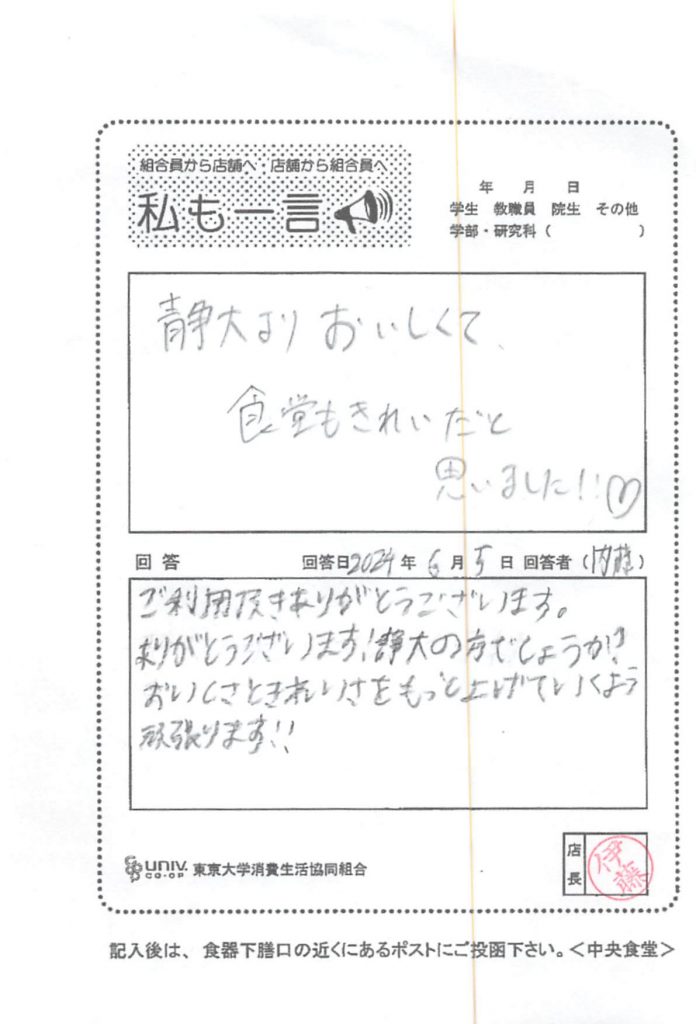 組合員から店舗へ 店舗から組合員へ
私も一言
年 月 日
学生 教職員 院生 その他
学部・研究科( )
静大よりおいしくて、
食堂もきれいだと
思いました!!♡
回答 回答日2024年6月5日 回答者(内藤)
ご利用頂きありがとうございます。
ありがとうございます!静大の方でしょうか!?
おいしさときれいさをもっと上げていくよう
頑張ります!!
UNIV. CO-OP 東京大学消費生活協同組合
店長 伊藤
記入後は、食器下膳口の近くにあるポストにご投函下さい。<中央食堂>